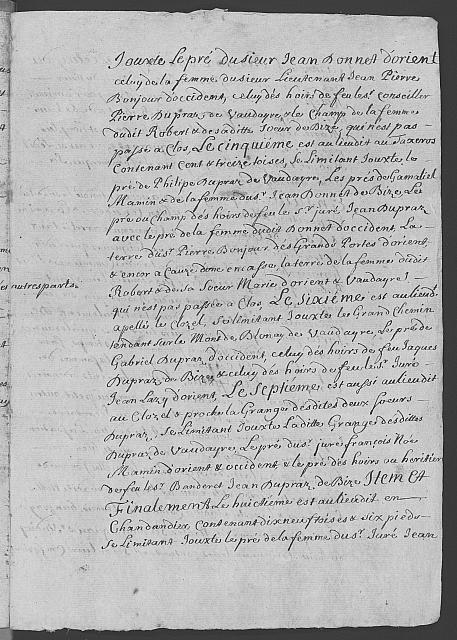 Jouxte le pré du sieur Jean Donnet d'orient
celuy de la femme du sieur Lieutenant Jean Pierre
Bonjour d'occident, celuy des hoirs de feu le sr. conseiller
Pierre Dupraz, de Vaudayre, & le Champ de la femme
dudit Robert & de saditte Soeur de Bize, qui n'est pas
passé a Clos, Le cinquieme est au lieudit au
Contenant Cent & treize toises, se Limitant Jouxte le
pré de Philipe Dupraz de Vaudayre, Les prés de Gamaliel
Mamin & de la femme du sr. Jean Donnet de Bize, Le
pré du Champ des hoirs de feu le sr. juré Jean Dupraz
avec le pré de la femme dudit Donnet d'occident, La
terre du sr. Pierre Bonjour des Grands Portes d'orient,
& encor a Cause d'ene encasse, la terre de la femme dudit
et autres parts.
Robert & de sa Soeur Marie d'orient & Vaudayre
qui n'est pas passée a Clos, Le sixieme est au lieud.
appellé le Clozel, se limitant Jouxte les Grand Chemin
tendant sur le Mont de Blonay de Vaudayre, Le pré de
Gabriel Dupraz d'occident, celuy des hoirs de feu Jaques
Dupraz de Bize, & celuy des hoirs de feu le sr. Juré
Jean Lazy d'orient, Le Septieme est aussi au lieudit
au Clozel & proche la Grange desdites deux Soeurs
Dupraz, se Limitant Jouxte Laditte Grange desdittes
Dupraz de Vaudayre, Le pré du sr. juré françois Noé
Mamin d'orient & occident, & le pré des hoirs ou heritier
de feu le sr. Banderet Jean Dupraz de Bize Item et
Finalement Le huictieme est au lieudit en
Chandandier, Contenant dix neuf toises & six pieds
se Limitant Jouxte le pré de la femme du sr. Juré Jean